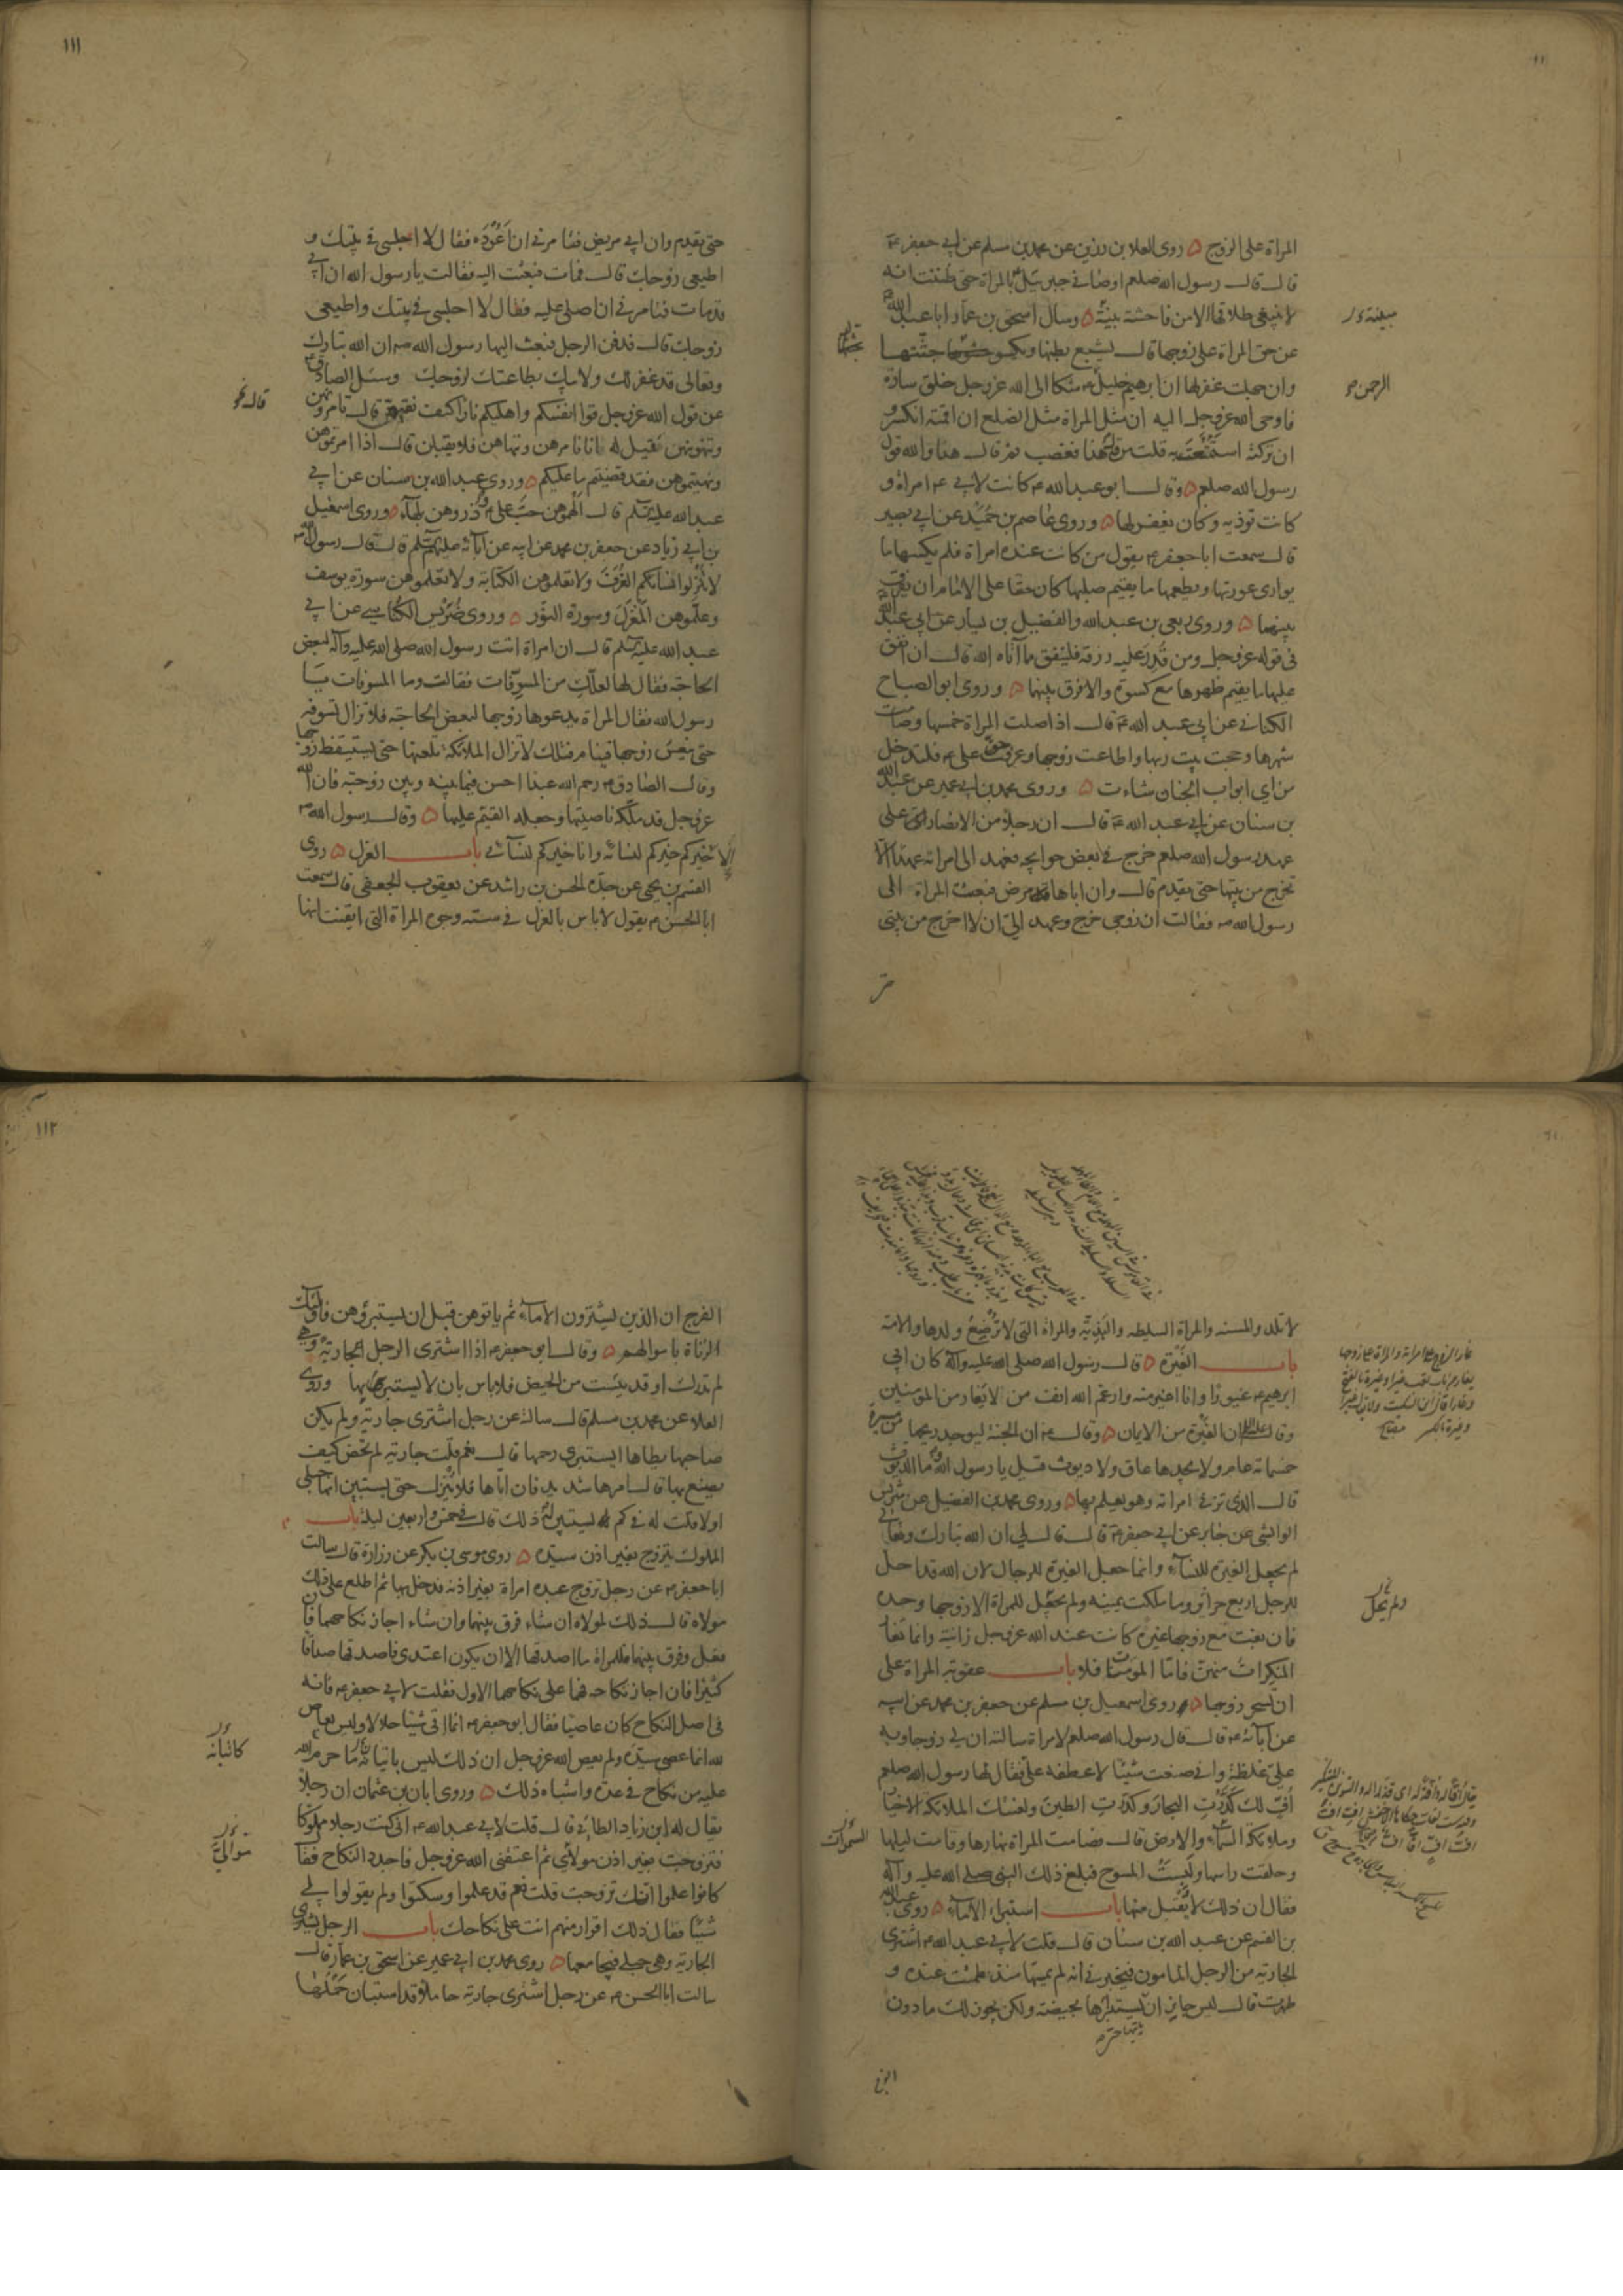 المراة على الزوج ه روى العلا بن رزين عن محمد بن مسلم عن ابي جعفر ع
قال قال رسول الله صلعم اوصاني جبرئيل بالمراة حتى ظننت انه
لا ينبغي طلاقها الا من فاحشة بينة ه وسال اسحق بن عمار ابا عبد الله ع
عن حق المراة على زوجها قال يشبع بطنها ويكسو جثتها
وان جهلت غفر لها ان ابرهيم خليل شكا الى الله عز وجل خلق سارة
فاوحى الله عز وجل اليه ان مثل المراة مثل الضلع ان اقمته انكسر و
ان تركته استمتعت به قلت من قال هذا فغضب ثم قال هذا والله قول
رسول الله صلعم ه وقال ابو عبد الله ع كانت لابي ع امراة و
كانت توذيه وكان يغفر لها ه وروى عاصم بن حميد عن ابي بصير
قال سمعت ابا جعفر ع يقول من كانت عنده امراة فلم يكسها ما
يوارى عورتها ويطعمها ما يقيم صلبها كان حقا على الامام ان يفرق
بينهما ه وروى ربعي بن عبد الله والفضيل بن يسار عن ابي عبد الله
في قوله عز وجل ومن قدر عليه رزقه فلينفق مما آتاه الله قال ان انفق
عليها ما يقيم ظهرها مع كسوة والا فرق بينهما ه وروى ابو الصباح
الكناني عن ابي عبد الله ع قال اذا صلت المراة خمسها وصامت
شهرها وحجت بيت ربها واطاعت زوجها وعرفت حق على ع فلتدخل
من اي ابواب الجنان شاءت ه وروى محمد بن ابي عمير عن عبد الله
بن سنان عن ابي عبد الله ع قال ان رجلا من الانصار على
عهد رسول الله صلعم خرج في بعض حوايجه فعهد الى امراته عهدا الا
تخرج من بيتها حتى يقدم قال وان اباها مرض فبعثت المراة الى
رسول الله ص فقالت ان زوجي خرج وعهد الي ان لا اخرج من بيتي
حتى
مبينة
الرحمن
١١١
حتى يقدم وان ابي مريض فتامرني ان اعوده فقال لا اجلسي في بيتك و
اطيعي زوجك قال فمات فبعثت اليه فقالت يا رسول الله ان ابي
قد مات فتامرني ان اصلي عليه فقال لا اجلسي في بيتك واطيعي
زوجك قال فدفن الرجل فبعث اليها رسول الله ص ان الله تبارك
وتعالى قد غفر لك ولابيك بطاعتك لزوجك وسئل الصادق ع
عن قول الله عز وجل قوا انفسكم واهليكم نارا كيف نقيهن قال تامرونهن
وتنهونهن فقيل له انا نامرهن وننهاهن فلا يقبلن قال اذا امرتموهن
ونهيتموهن فقد قضيتم ما عليكم ه وروى عبد الله بن سنان عن ابي
عبد الله عليه السلم قال الهموهن حب علي ع وذروهن بلهآء ه وروى اسمعيل
بن ابي زياد عن جعفر بن محمد عن ابيه عن آبائه عليهم السلم قال قال رسول الله ص
لا تنزلوا نساءكم الغرف ولا تعلموهن الكتابة ولا تعلموهن سورة يوسف
وعلموهن المغزل وسورة النور ه وروى ضريس الكناسي عن ابي
عبد الله عليه السلم قال ان امراة اتت رسول الله صلى الله عليه وآله لبعض
الحاجة فقال لها لعلك من المسوفات فقالت وما المسوفات يا
رسول الله فقال المراة يدعوها زوجها لبعض الحاجة فلا تزال تسوفه
حتى ينعس زوجها فينام فتلك لا تزال الملائكة تلعنها حتى يستيقظ زوجها
وقال الصادق ع رحم الله عبدا احسن فيما بينه وبين زوجته فان الله
عز وجل قد ملكه ناصيتها وجعله القيم عليها ه وقال رسول الله ص
الا خيركم خيركم لنسائه وانا خيركم لنسآئي باب العزل ه روى
القسم بن يحيى عن جده الحسن بن راشد عن يعقوب الجعفي قال سمعت
ابا الحسن ع يقول لا باس بالعزل في ستة وجوه المراة التي ايقنت انها
لا تلد والمسنه والمراة السليطه والبذية والمراة التي لا ترضع ولدها والامة
باب الغيرة ه قال رسول الله صلى الله عليه وآله كان ابي
ابرهيم ع غيورا وانا اغير منه وارغم الله انف من لا يغار من المومنين
وقال عليه السلم ان الغيرة من الايمان ه وقال ع ان الجنة ليوجد ريحها من مسيرة
خمسمائة عام ولا يجدها عاق ولا ديوث قيل يا رسول الله وما الديوث
قال الذي تزني امراته وهو يعلم بها ه وروى محمد بن الفضيل عن شريس
الوابشي عن جابر عن ابي جعفر ع قال قال لي ان الله تبارك وتعالى
لم يجعل الغيرة للنسآء وانما جعل الغيرة للرجال لان الله قد احل
للرجل اربع حرائر وما ملكت يمينه ولم يجعل للمراة الا زوجها وحده
فان بغت مع زوجها غيره كانت عند الله عز وجل زانية وانما تغار
المنكرات منهن فاما المومنات فلا باب عقوبة المراة على
ان تسحر زوجها ه روى اسمعيل بن مسلم عن جعفر بن محمد عن ابيه
عن آبائه ع قال قال رسول الله صلعم لامراة سالته ان لي زوجا وبه
علي غلظة واني صنعت شيئا لاعطفه علي فقال لها رسول الله صلعم
اف لك كدرت البحار وكدرت الطين ولعنتك الملائكة الاخيار
وملائكة السمآء والارض قال فصامت المراة نهارها وقامت ليلها
وحلقت راسها ولبست المسوح فبلغ ذلك النبي صلى الله عليه وآله
فقال ان ذلك لا يقبل منها باب استبراء الامآء ه روى عبد الله
بن القسم عن عبد الله بن سنان قال قلت لابي عبد الله ع اشترى
الجارية من الرجل المامون فيخبرني انه لم يمسها منذ طمثت عنده و
طهرت قال ليس جايز ان يستبرئها بحيضة ولكن يجوز لك ما دون
الفرج
ولم يحل
السموات
١١٢
الفرج ان الذين يشترون الامآء ثم ياتوهن قبل ان يستبرؤهن فاولئك
الزناة باموالهم ه وقال ابو جعفر ع اذا اشترى الرجل الجارية وهي
لم تدرك او قد يئست من الحيض فلا باس بان لا يستبرئها وروى
العلا عن محمد بن مسلم قال سالته عن رجل اشترى جارية ولم يكن
صاحبها يطاها ايستبرى رحمها قال نعم قلت جارية لم تحض كيف
يصنع بها قال امرها شديد فان اتاها فلا ينزل حتى يستبين انها حبلى
او لا قلت له في كم يستبين له ذلك قال في خمس واربعين ليلة باب
المملوك يتزوج بغير اذن سيده ه روى موسى بن بكر عن زرارة قال سالت
ابا جعفر ع عن رجل تزوج عبده امراة بغير اذنه فدخل بها ثم اطلع على ذلك
مولاه قال ذلك لمولاه ان شاء فرق بينهما وان شاء اجاز نكاحهما فان
فعل وفرق بينهما فللمراة ما اصدقها الا ان يكون اعتدى فاصدقها صداقا
كثيرا فان اجاز نكاحه فهما على نكاحهما الاول فقلت لابي جعفر ع فانه
في اصل النكاح كان عاصيا فقال ابو جعفر ع انما اتى شيئا حلالا وليس بعاص
لله انما عصى سيده ولم يعص الله عز وجل ان ذلك ليس باتيانه ما حرم الله
عليه من نكاح في عدة واشباه ذلك ه وروى ابان بن عثمان ان رجلا
يقال له ابن زياد الطائي قال قلت لابي عبد الله ع اني كنت رجلا مملوكا
فتزوجت بغير اذن مولاي ثم اعتقني الله عز وجل فاجدد النكاح فقال
كانوا علموا انك تزوجت قلت نعم قد علموا وسكتوا ولم يقولوا لي
شيئا فقال ذلك اقرار منهم انت على نكاحك باب الرجل يشترى
الجارية وهي حبلى فيجامعها ه روى محمد بن ابي عمير عن اسحق بن عمار قال
سالت ابا الحسن ع عن رجل اشترى جارية حاملا وقد استبان حملها
كاتيانه
موالي